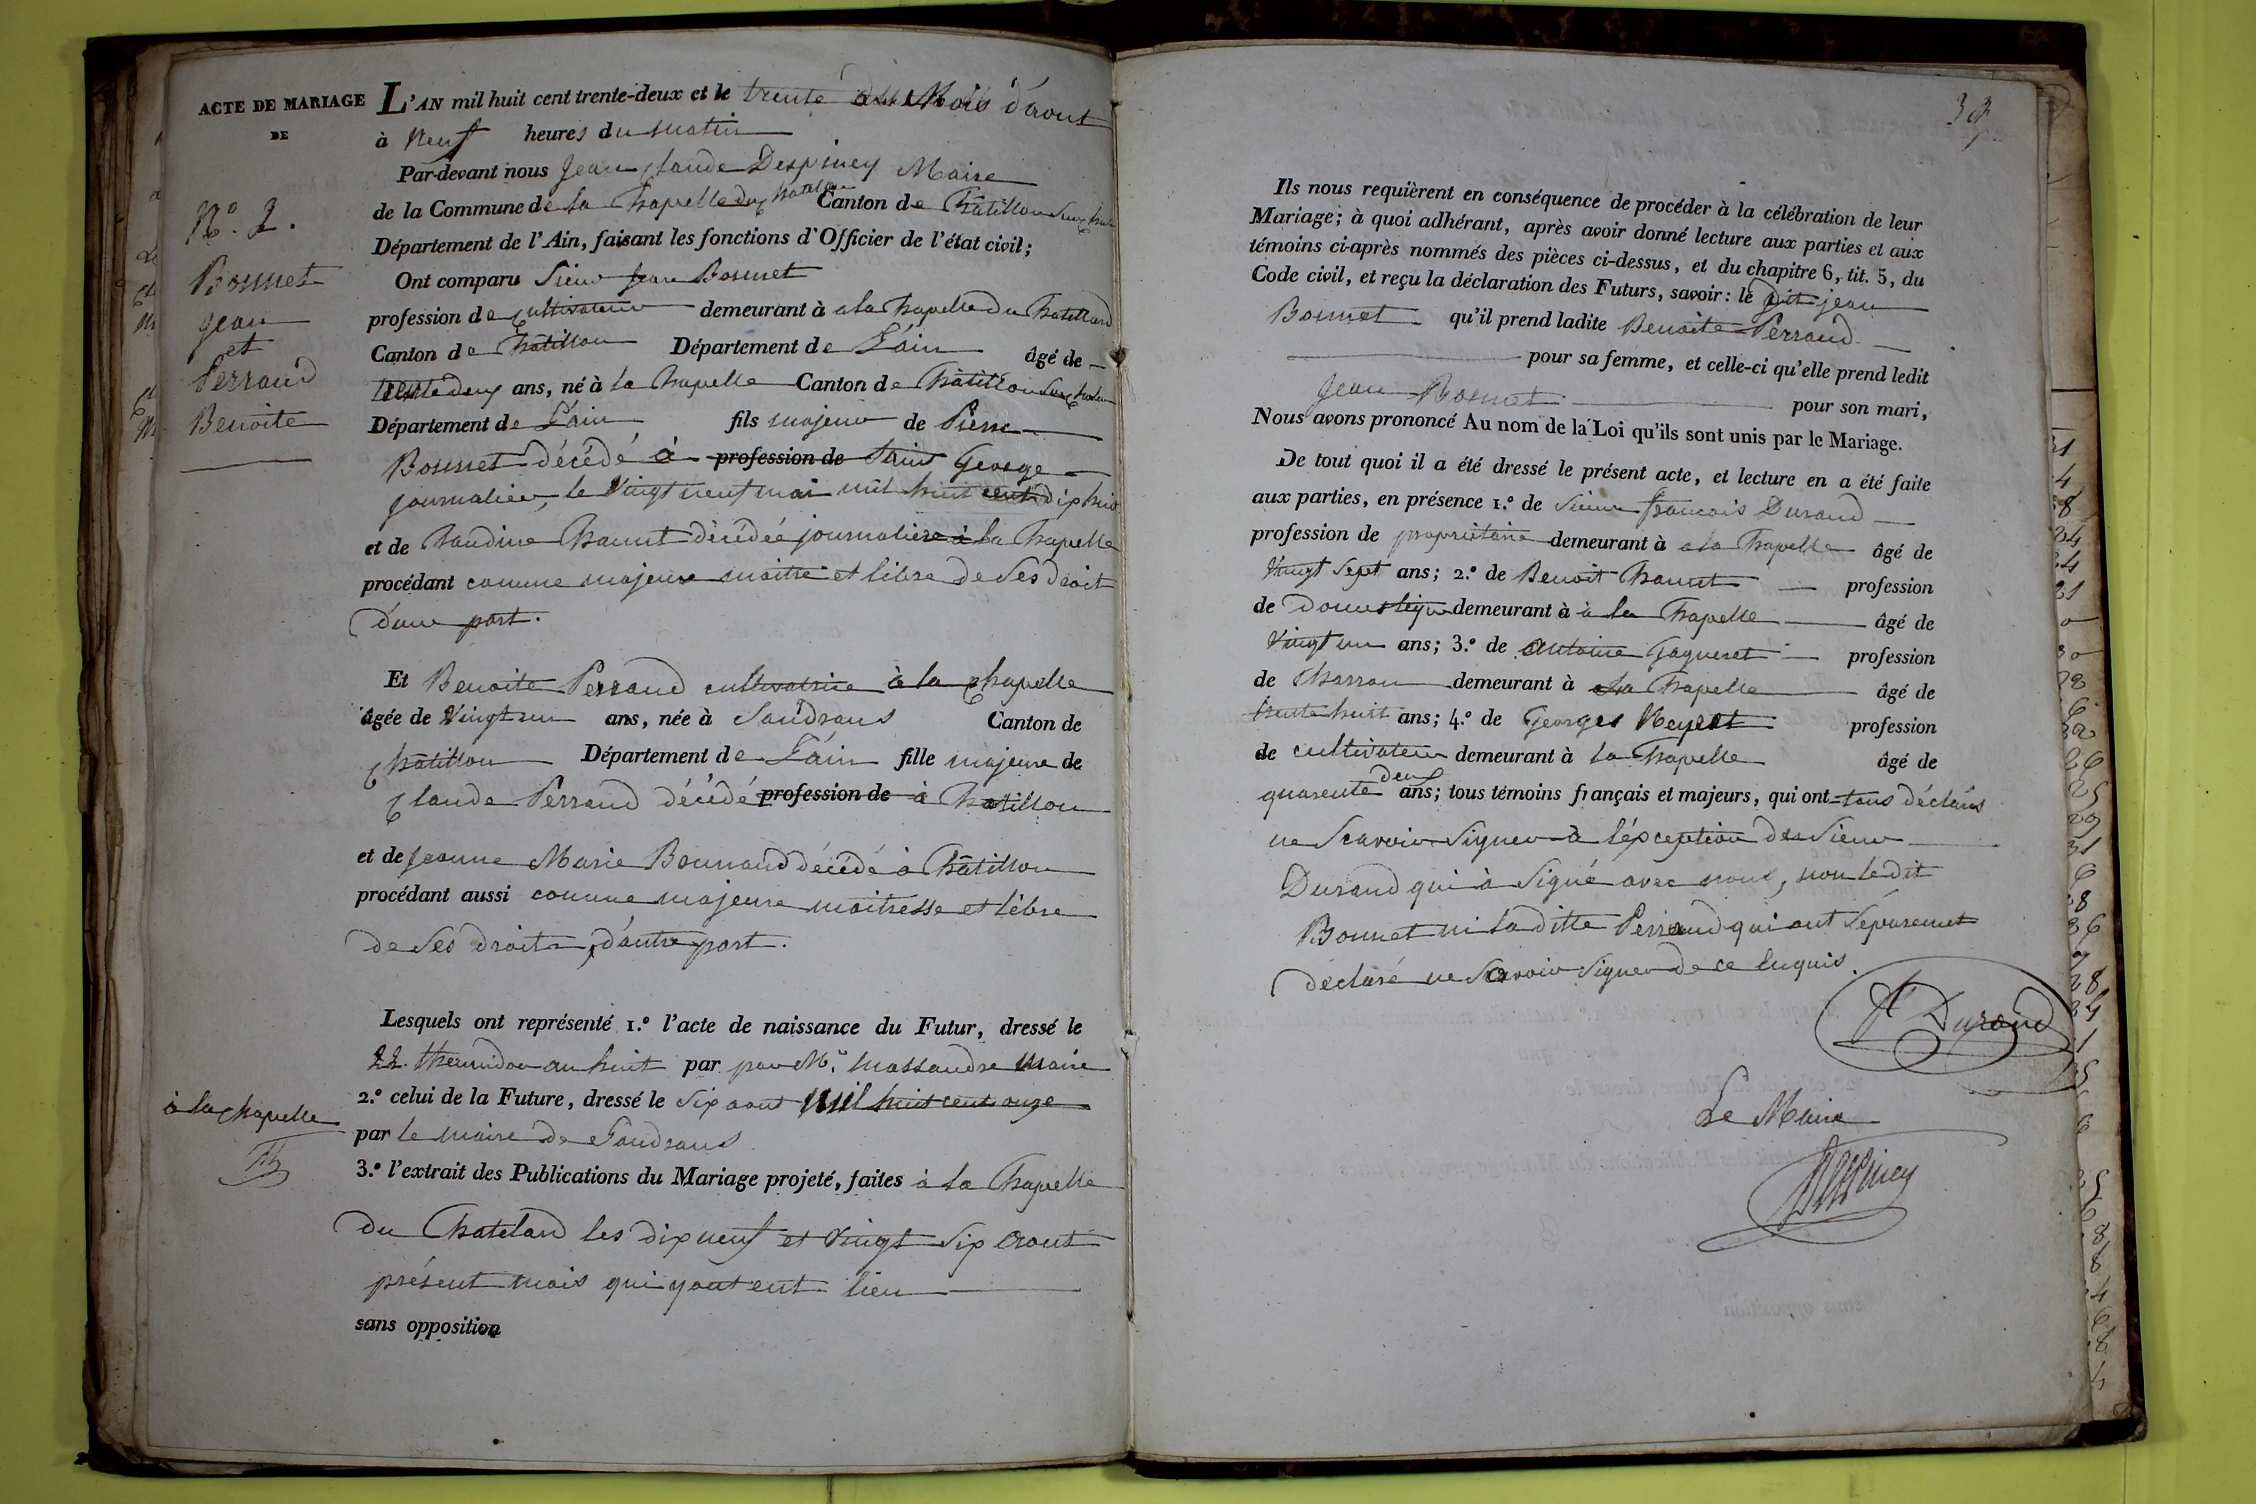 ACTE DE MARIAGE
DE
N.° 2.
Bonnet
jean
et
Perraud
Benoite
L'AN mil huit cent trente-deux et le trente du Mois d'aout
à Neuf heures du matin
Par-devant nous Jean Claude Despiney Maire
de la Commune de la Chapelle du Chatelar Canton de Châtillon Sur
Département de l'Ain, faisant les fonctions d'Officier de l'état civil;
Ont comparu Sieur Jean Bonnet
profession de Cultivateur demeurant à a la Chapelle du Chatelard
Canton de Châtillon Département de L'ain âgé de
trente deux ans, né à la Chapelle Canton de Châtillon Sur
Département de L'ain fils majeur de Pierre
Bonnet décédé à profession de Saint George
journalier, le Vingt neuf mai mil huit cent dix huit
et de Claudine décédée journaliere à la Chapelle
procédant comme majeure maitre et libre de Ses droit
d'une part.
Et Benoite Perraud cultivatrice à la Chapelle
âgée de Vingt un ans, née à Sandrans Canton de
Châtillon Département de L'ain fille majeure de
Claude Perraud décédé profession de à Chatillon
et de Jeanne Marie décédé à Châtillon
procédant aussi comme majeure maitresse et libre
de Ses droits, d'autre part.
Lesquels ont représenté 1.° l'acte de naissance du Futur, dressé le
22. thermidor an huit par par Mr. Maire
à la Chapelle
2.° celui de la Future, dressé le Six aout mil huit cent onze
par le maire de Sandrans
3.° l'extrait des Publications du Mariage projeté, faites à la Chapelle
du Chatelard les dix neuf et Vingt Six Aout
présent mois qui y ont eut lieu
sans opposition
39
Ils nous requièrent en conséquence de procéder à la célébration de leur
Mariage; à quoi adhérant, après avoir donné lecture aux parties et aux
témoins ci-après nommés des pièces ci-dessus, et du chapitre 6, tit. 5, du
Code civil, et reçu la déclaration des Futurs, savoir: le dit jean
Bonnet qu'il prend ladite Benoite Perraud
pour sa femme, et celle-ci qu'elle prend ledit
Jean Bonnet pour son mari,
Nous avons prononcé Au nom de la Loi qu'ils sont unis par le Mariage.
De tout quoi il a été dressé le présent acte, et lecture en a été faite
aux parties, en présence 1.° de Sieur francois Durand
profession de propriétaire demeurant à a la Chapelle âgé de
Vingt Sept ans; 2.° de Benoit profession
de domestique demeurant à à la Chapelle âgé de
Vingt un ans; 3.° de antoine profession
de Charron demeurant à a la Chapelle âgé de
trente huit ans; 4.° de Georges profession
de cultivateur demeurant à la Chapelle âgé de
quarente deux ans; tous témoins français et majeurs, qui ont tous déclarés
ne Scavoir Signer à l'éxception du Sieur
Durand qui à Signé avec nous, non le dit
Bonnet ni la ditte Perraud qui ont Séparemet
déclaré ne Scavoir Signer de ce enquis.
Durand
Le Maire
Despiney